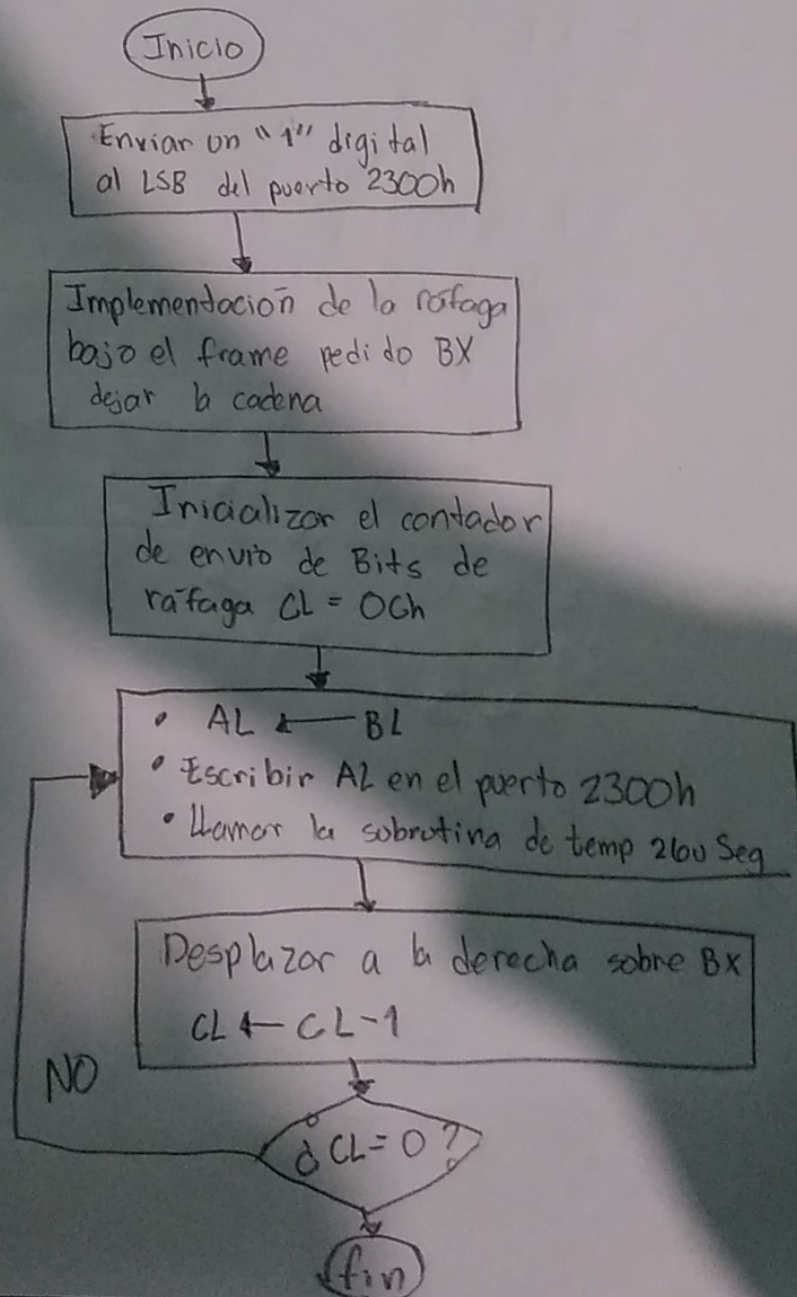 Inicio
Enviar un "1" digital
al LSB del puerto 2300h
Implementación de la ráfaga
bajo el frame pedido BX
dejar la cadena
Inicializar el contador
de envio de Bits de
ráfaga CL = 0Ch
• AL ← BL
• Escribir AL en el puerto 2300h
• Llamar la subrutina de temp 260 Seg
Desplazar a la derecha sobre BX
CL ← CL-1
NO
¿CL=0?
fin